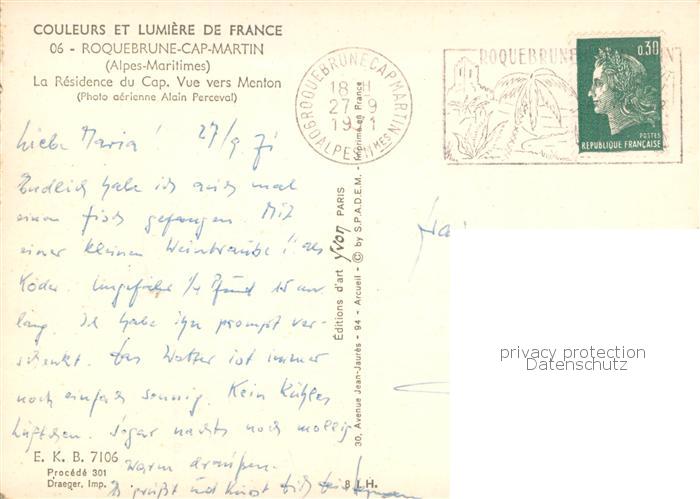 COULEURS ET LUMIÈRE DE FRANCE
06 - ROQUEBRUNE-CAP-MARTIN
(Alpes-Maritimes)
La Résidence du Cap. Vue vers Menton
(Photo aérienne Alain Perceval)
Liebe Maria! 27/9 71
Endlich habe ich auch mal
einen Fisch gefangen. Mit
einer kleinen Weintraube!! als
Köder. Ungefähr 1/4 Pfund 15 cm
lang. Ich habe ihn prompt ver-
schenkt. Das Wetter ist immer
noch einfach sonnig. Kein kühles
Lüftchen. Sogar nachts noch mollig
warm draußen.
Es grüßt und küsst Dich
E. K. B. 7106
Procédé 301
Draeger, Imp.
8 L.H.
Editions d'art Yvon PARIS
30, Avenue Jean-Jaurès - 94 - Arcueil - © by S.P.A.D.E.M. - Imprimé en France
06 ROQUEBRUNE CAP MARTIN
18 H
27-9
1971
ALPES MMES
ROQUEBRUNE
0,30
POSTES
REPUBLIQUE FRANÇAISE
privacy protection
Datenschutz